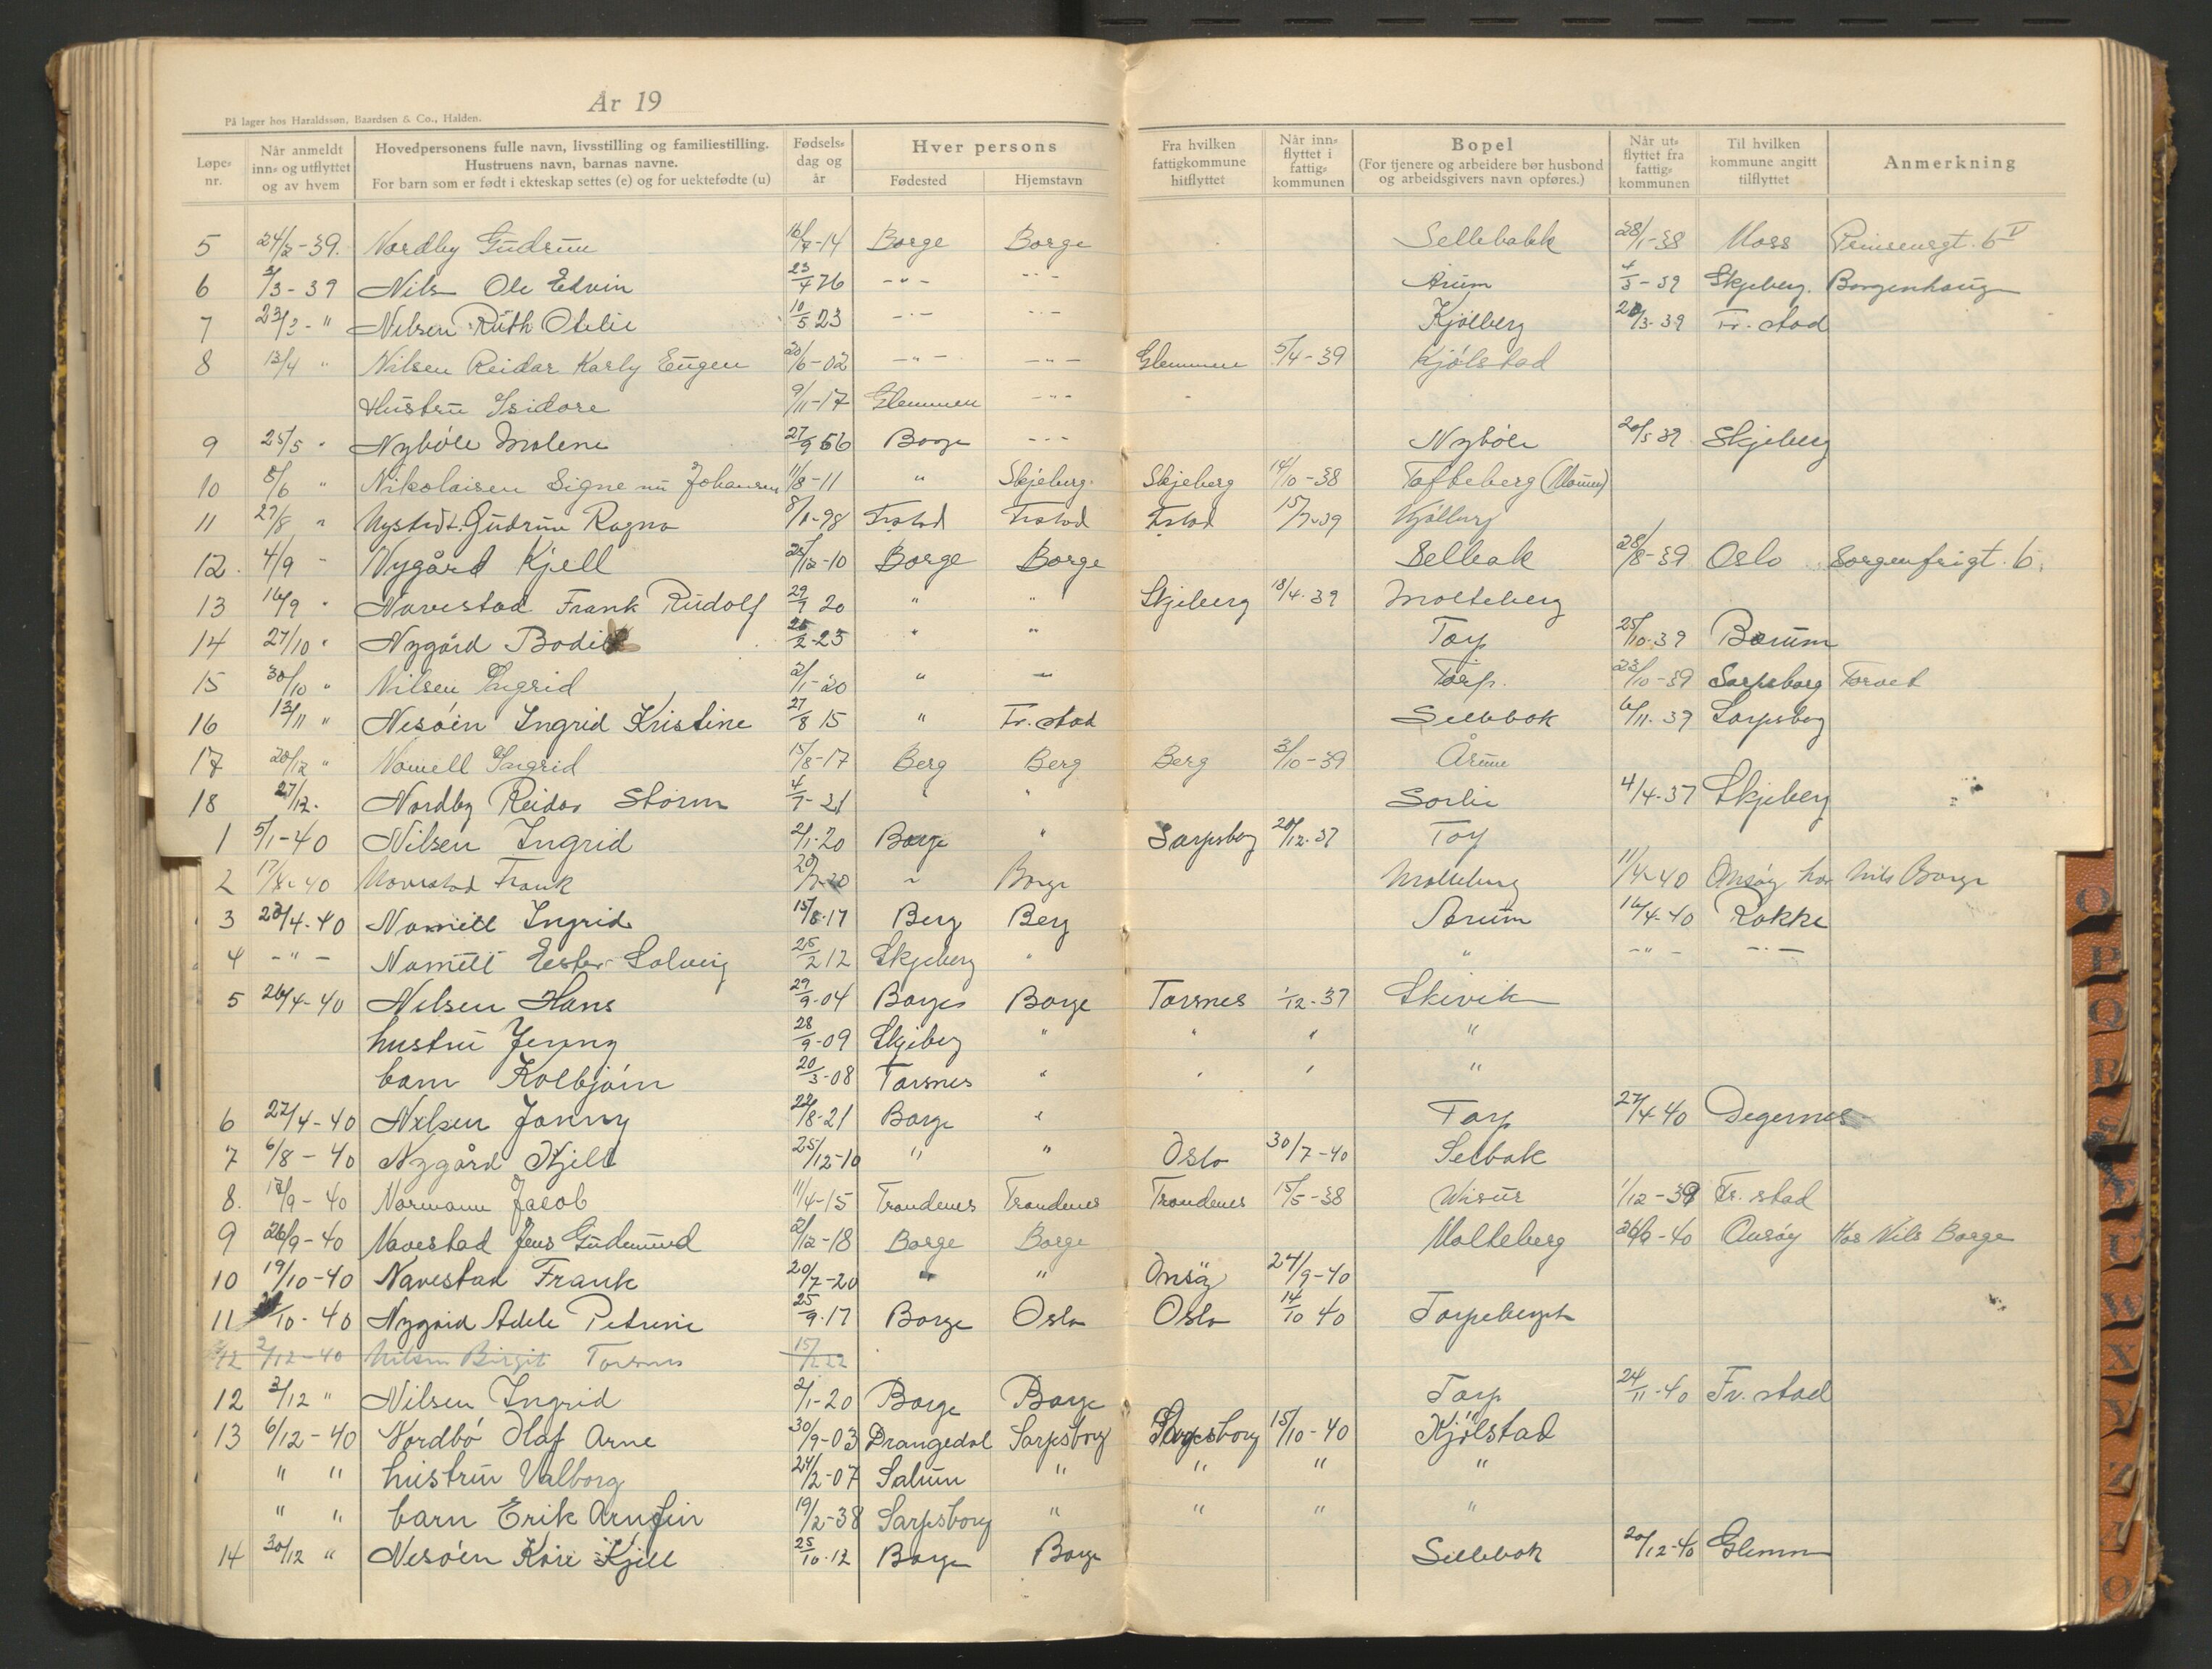 År 19
På lager hos Haraldssøn, Baardsen & Co., Halden.
Løpe-nr. Når anmeldt inn- og utflyttet og av hvem Hovedpersonens fulle navn, livsstilling og familiestilling. Hustruens navn, barnas navne. For barn som er født i ekteskap settes (e) og for uektefødte (u) Fødsels-dag og år Hver persons Fødested Hjemstavn Fra hvilken fattigkommune hitflyttet Når inn-flyttet i fattig-kommunen Bopel (For tjenere og arbeidere bør husbond og arbeidsgivers navn opføres.) Når ut-flyttet fra fattig-kommunen Til hvilken kommune angitt tilflyttet Anmerkning
5 24/2-39. Nordby Gudrun 16/7-14 Borge Borge Sellebakk 28/1-38 Moss Prinsensgt. 6 V
6 3/3-39 Nils Ole Edvin 23/4 76 -"- -"- Årum 4/3-39 Skjeberg. Borgenhaug
7 23/3-" Nilsen Ruth Otelie 10/5 23 -"- -"- Kjølberg 20/3-39 Fr. stad
8 13/4 " Nilsen Reidar Karly Eugen 20/6-02 -"- -"- Glemmen 5/4-39 Kjølstad
Hustru Isidore 9/11-17 Glemmen -"-
9 25/5 " Nybøle Molene 27/9 56 Borge -"- Nybøle 20/5 39 Skjeberg
10 8/6 " Nikolaisen Signe nu Johansen 11/8-11 " Skjeberg. Skjeberg 14/10-38 Tofteberg
11 27/8 " Nystedt. Gudrun Ragna 8/1-98 Frstad Frstad Frstad 15/7-39 Kjølberg
12. 4/9 - Nygård Kjell 25/12-10 Borge Borge Selbak 28/8-39 Oslo Sorgenfrigt. 6.
13 16/9 " Navestad Frank Rudolf 29/7 20 " " Skjeberg 18/4-39 Molteberg
14 27/10 " Nygård Bodil 25/2-23 " " Torp 25/10-39 Bærum
15 30/10 " Nilsen Ingrid 2/1-20 " " Torp. 23/10-39 Sarpsborg Torvet
16 13/11 " Nesøen Ingrid Kristine 27/8 15 " Fr. stad Sellebak 6/11-39 Sarpsborg
17 20/12 " Nomell Ingrid 15/8-17 Berg Berg Berg 3/10-39 Årum
18 27/12. Nordby Reidar Storm 4/7-21 " " Sorlie 4/4-37 Skjeberg
1 5/1-40 Nilsen Ingrid 2/1-20 Borge " Sarpsborg 20/12-37 Torp
2 17/4-40 Navestad Frank 20/7-20 " Borge Molteberg 11/4-40 Onsøy hos Nils Borge
3 23/4-40 Nomell Ingrid 15/8-17 Berg Berg Årum 16/4-40 Rokke
4 -"- Nomell Ester Solveig 25/2 12 Skjeberg " " -"- -"-
5 26/4-40 Nilsen Hans 29/9-04 Borge Borge Torsnes 1/12-37 Skivik
hustru Jenny 28/9-09 Skjeberg " " " "
barn Kolbjørn 20/3-08 Torsnes " " " "
6 27/4-40 Nilsen Jonny 22/8-21 Borge " Torp 27/4-40 Degernes
7 6/8-40 Nygård Kjell 25/12-10 " " Oslo 30/7-40 Selbak
8. 12/9-40 Normann Jacob 11/4-15 Trondenes Trondenes Trondenes 15/5-38 Visur 1/12-39 Fr. stad
9 26/9-40 Navestad Jens Gudmund 2/12-18 Borge Borge Molteberg 26/9-40 Onsøy Hos Nils Borge
10 19/10-40 Navestad Frank 20/7-20 " " Onsøy 24/9-40
11 /10-40 Nygård Adele Petrine 25/9-17 Borge Oslo Oslo 14/10 40 Torpeberget
12 2/12-40 Nilsen Birgit Torsnes 15/ 22
12 3/12 " Nilsen Ingrid 2/1-20 Borge Borge Torp 24/11-40 Fr. stad
13 6/12-40 Nordbø Olaf Arne 30/9-03 Drangedal Sarpsborg Sarpsborg 15/10-40 Kjølstad
" " hustru Valborg 24/2-07 Solum " " " "
" " barn Erik Arnfin 19/2-38 Sarpsborg " " " "
14 30/12 " Nesøen Kåre Kjell 25/10-12 Borge Borge Sellebak 20/12-40 Glemm
O
P
Q
R
U
W
X
Y
Z
Ø